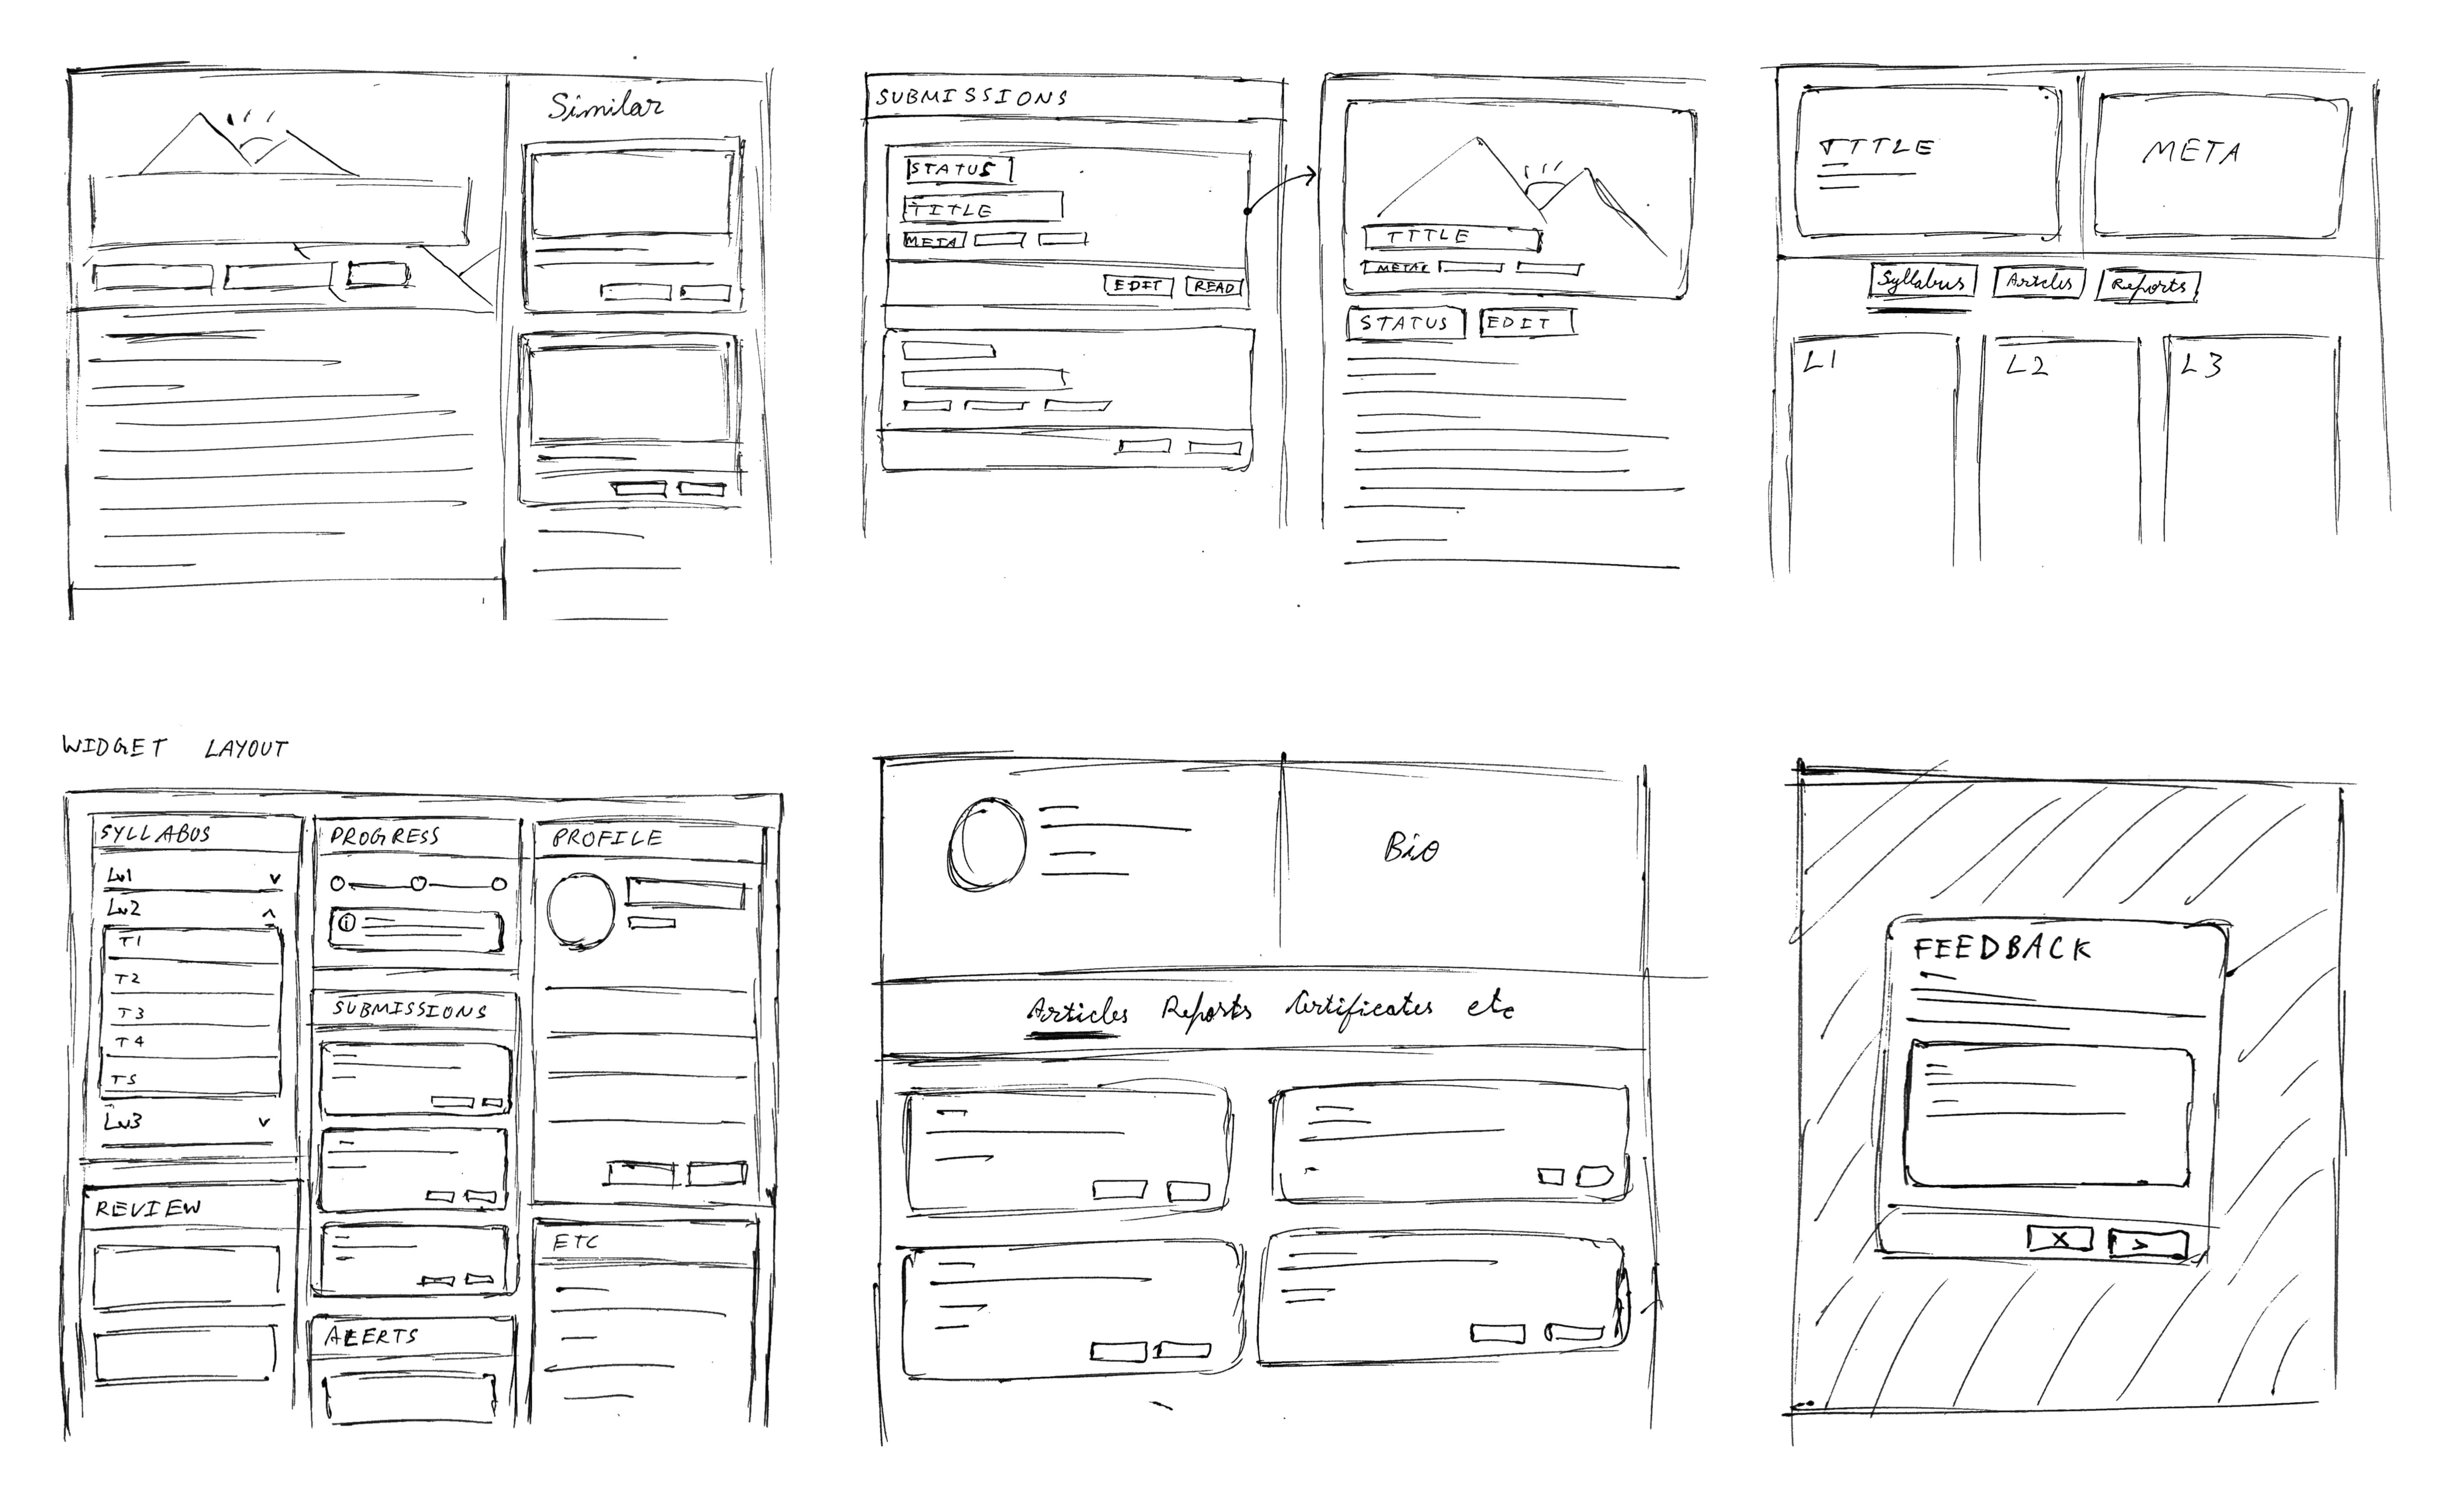 Similar
SUBMISSIONS
STATUS
TITLE
META
EDIT
READ
TITLE
META
STATUS
EDIT
TITLE
META
Syllabus
Articles
Reports
L1
L2
L3
WIDGET LAYOUT
SYLLABUS
Lv1
Lv2
T1
T2
T3
T4
T5
Lv3
REVIEW
PROGRESS
i
SUBMISSIONS
ALERTS
PROFILE
ETC
Bio
Articles Reports Certificates etc
FEEDBACK
X
>